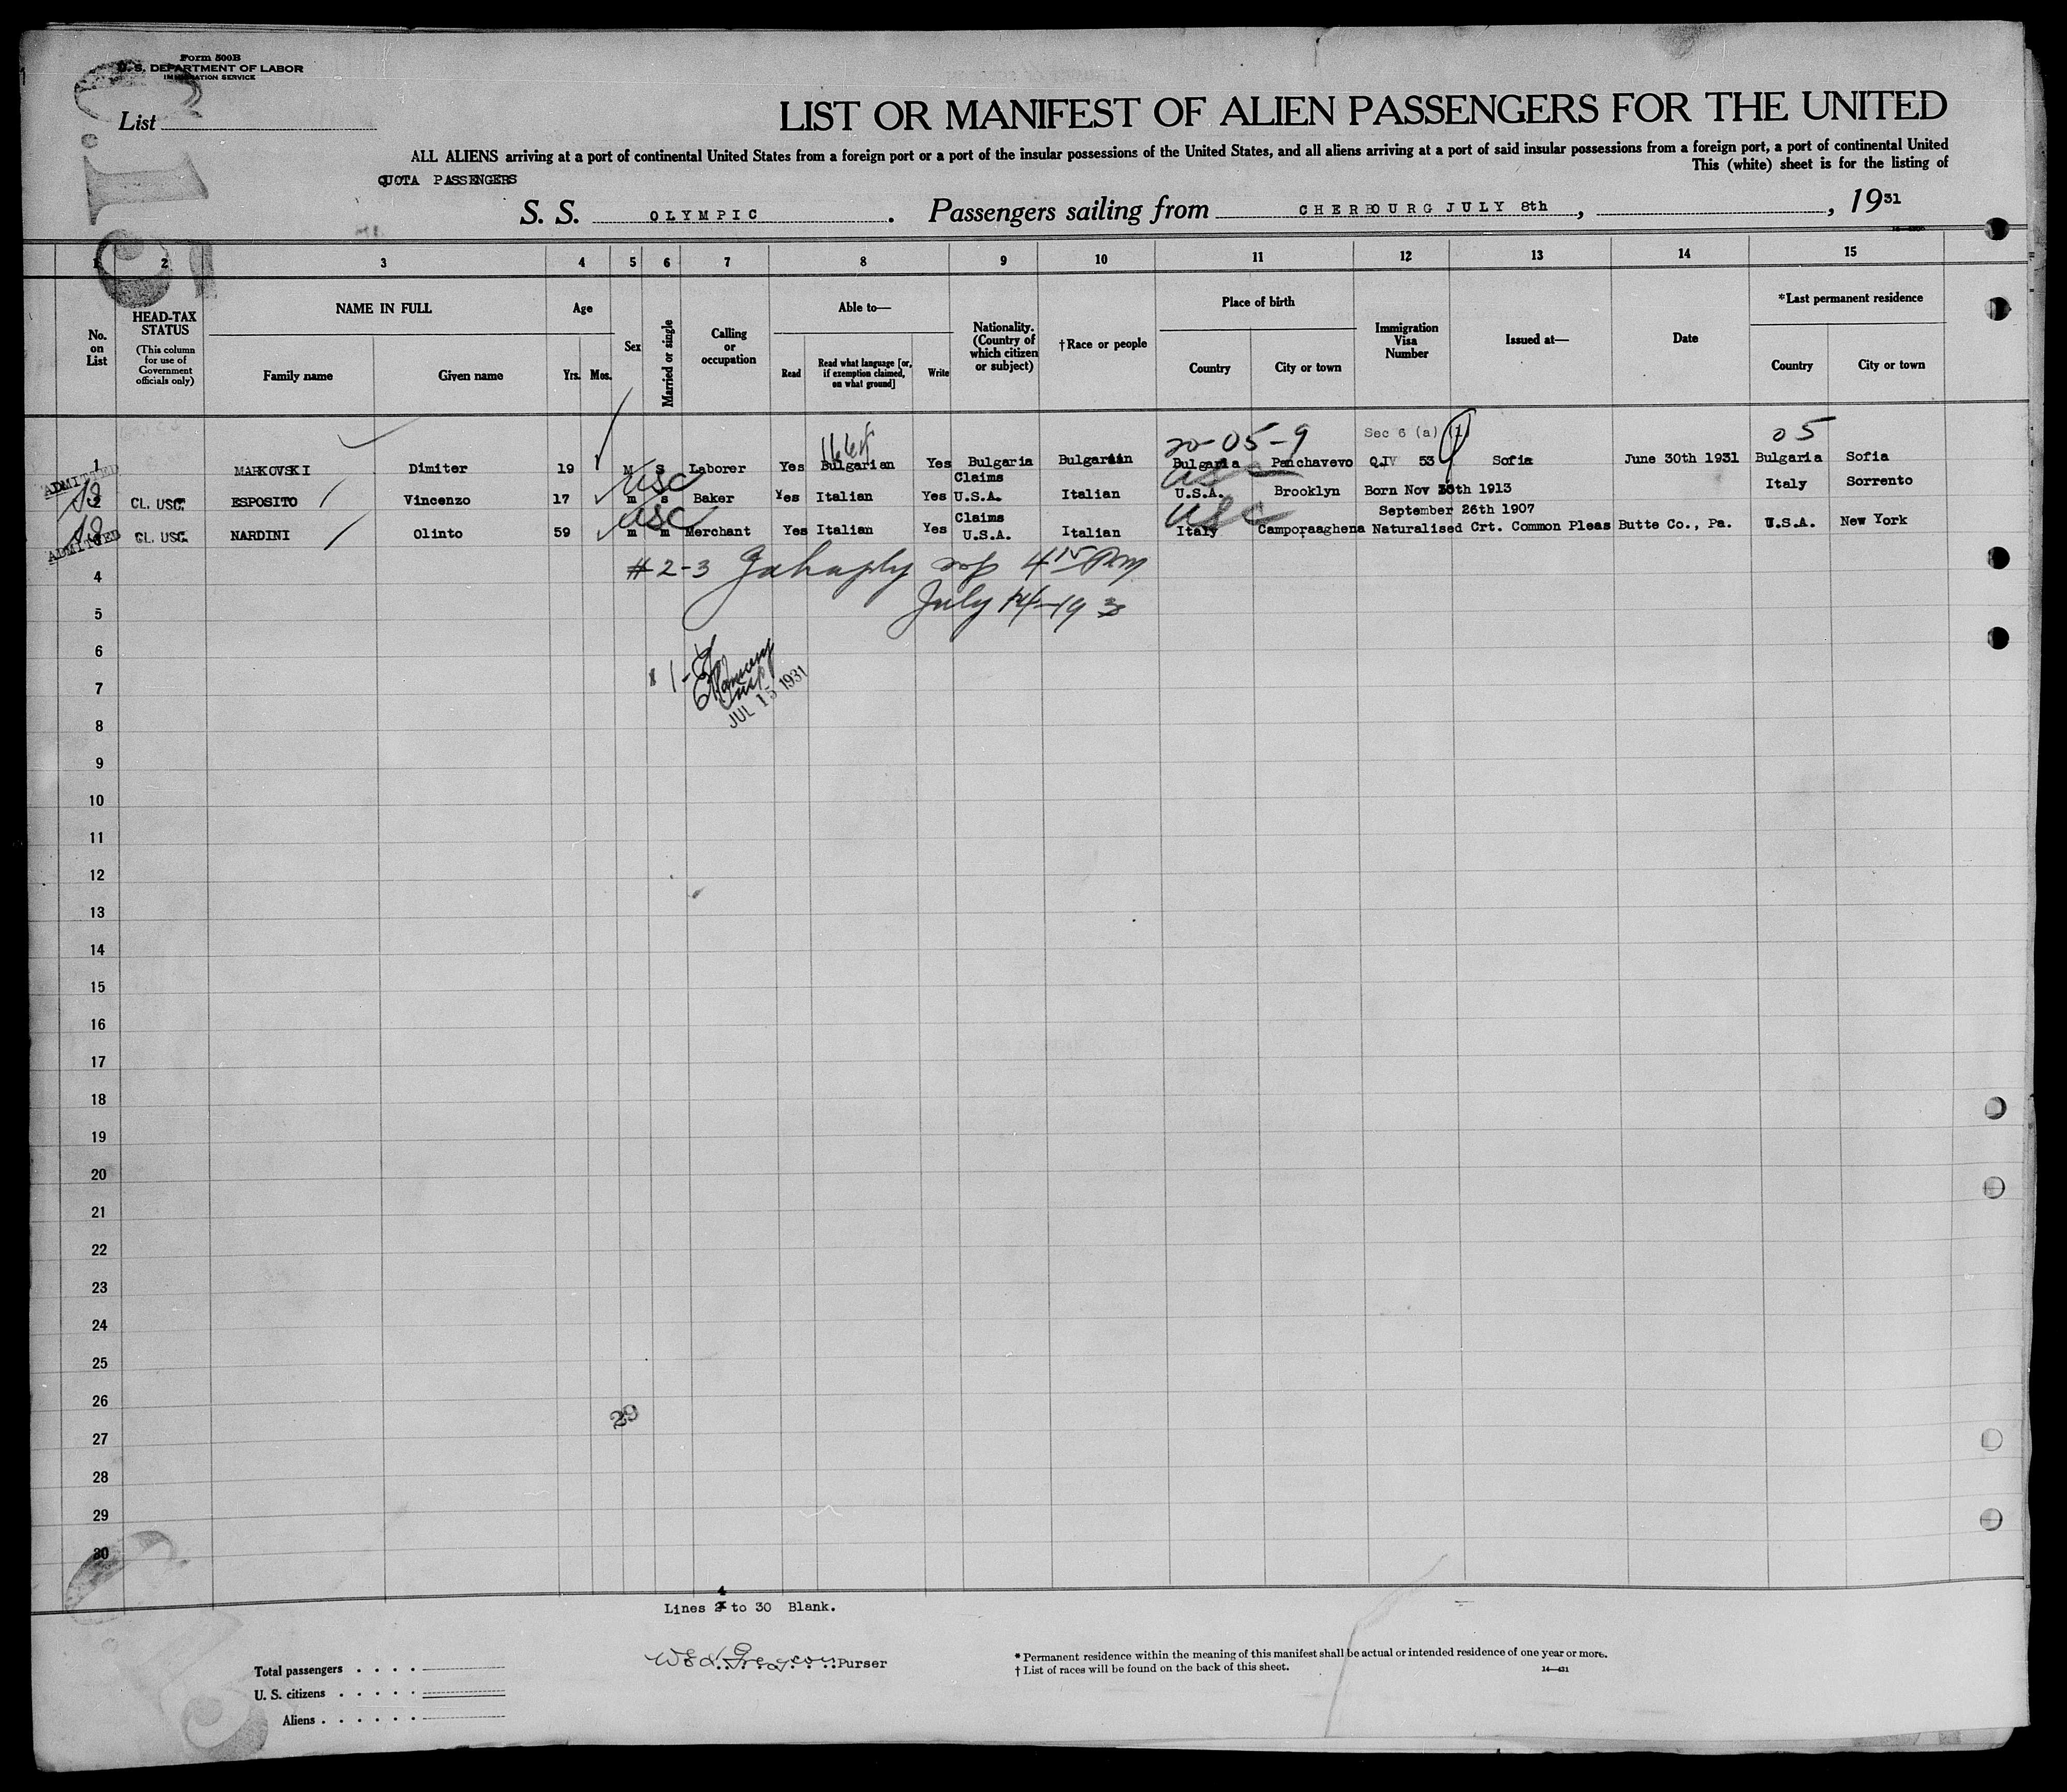 Form 500B
U. S. DEPARTMENT OF LABOR
IMMIGRATION SERVICE
List
LIST OR MANIFEST OF ALIEN PASSENGERS FOR THE UNITED
ALL ALIENS arriving at a port of continental United States from a foreign port or a port of the insular possessions of the United States, and all aliens arriving at a port of said insular possessions from a foreign port, a port of continental United
This (white) sheet is for the listing of
QUOTA PASSENGERS
S. S. OLYMPIC. Passengers sailing from CHERBOURG JULY 8th, , 1931
1 2 3 4 5 6 7 8 9 10 11 12 13 14 15
No. on List
HEAD-TAX STATUS
(This column for use of Government officials only)
NAME IN FULL
Family name Given name
Age
Yrs. Mos.
Sex
Married or single
Calling or occupation
Able to—
Read
Read what language [or, if exemption claimed, on what ground]
Write
Nationality. (Country of which citizen or subject)
†Race or people
Place of birth
Country City or town
Immigration Visa Number
Issued at—
Date
*Last permanent residence
Country City or town
20-05-9 Sec 6 (a) (1) 05
1 MARKOVSKI Dimiter 19 M S Laborer Yes Bulgarian Yes Bulgaria Bulgarian Bulgaria Panchavevo Q.IV 53 Sofia June 30th 1931 Bulgaria Sofia
ADMITTED
USC
2 CL. USC. ESPOSITO Vincenzo 17 m s Baker Yes Italian Yes Claims U.S.A. Italian U.S.A. Brooklyn Born Nov 30th 1913 Italy Sorrento
USC USC September 26th 1907
CL. USC. NARDINI Olinto 59 m m Merchant Yes Italian Yes Claims U.S.A. Italian Italy Camporaaghena Naturalised Crt. Common Pleas Butte Co., Pa. U.S.A. New York
ADMITTED
4 #2-3 4 15 PM
5 July 14-19
6
7
JUL 15 1931
8
9
10
11
12
13
14
15
16
17
18
19
20
21
22
23
24
25
26
29
27
28
29
30
4
Lines 2 to 30 Blank.
Purser
* Permanent residence within the meaning of this manifest shall be actual or intended residence of one year or more.
† List of races will be found on the back of this sheet.
14—421
Total passengers . . . .
U. S. citizens . . . . .
Aliens . . . . . .